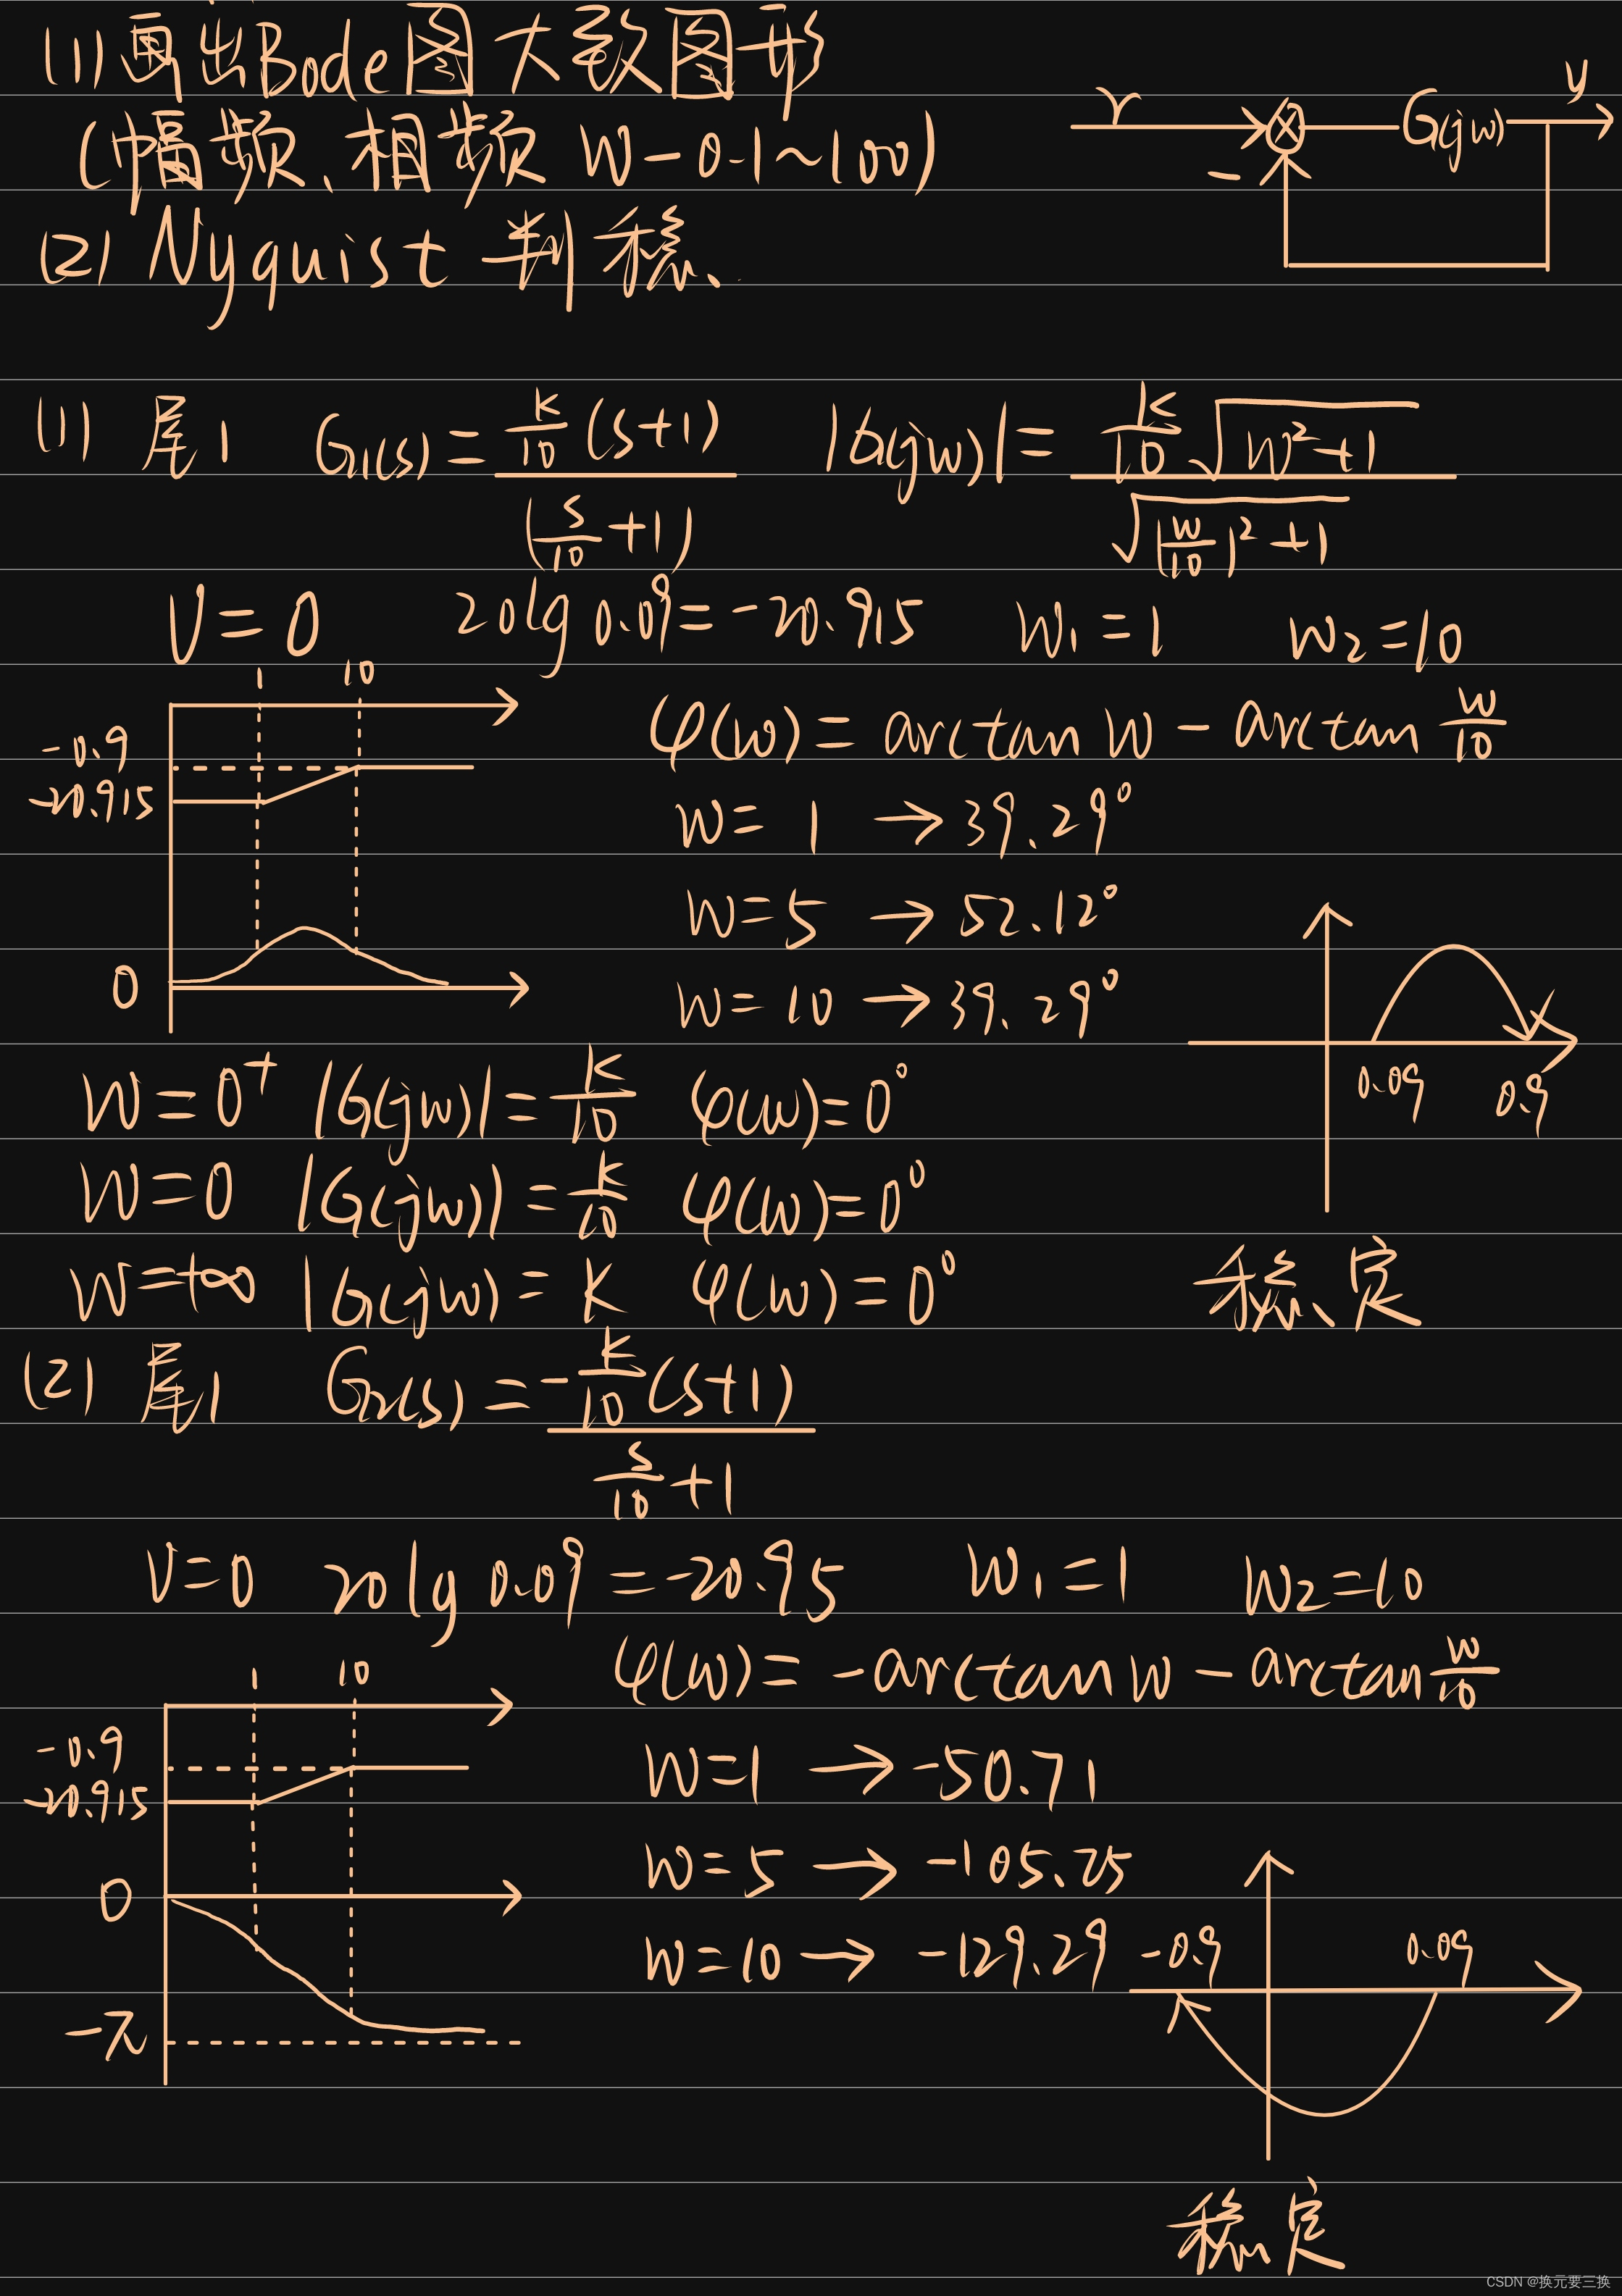 (1)画出Bode图大致图形
(幅频、相频 W-0.1~100)
r - G(jw) y
(2) Nyquist 判稳、
(1) 尾1 G1(s) = k/10 (s+1) / (s/10 +1) |G(jw)| = k/10 √(w²+1) / √((w/10)²+1)
V=0 20lg 0.09=-20.915 W1=1 W2=10
1 10
-0.9
-20.915
0
φ(w) = arctan w - arctan w/10
w=1 → 39.29°
w=5 → 52.12°
w=10 → 39.29°
0.09 0.9
W=0⁺ |G(jw)|=k/10 φ(w)=0°
W=0 |G(jw)|=k/10 φ(w)=0°
W=+∞ |G(jw)|=K φ(w)=0°
稳定
(2) 尾1 G2(s) = -k/10 (s+1) / s/10 +1
V=0 20lg 0.09=-20.95 W1=1 W2=10
φ(w) = -arctan w - arctan w/10
1 10
-0.9
-20.915
0
-π
W=1 → -50.71
W=5 → -105.25
W=10 → -129.29
-0.9 0.09
稳定
CSDN @换元要三换